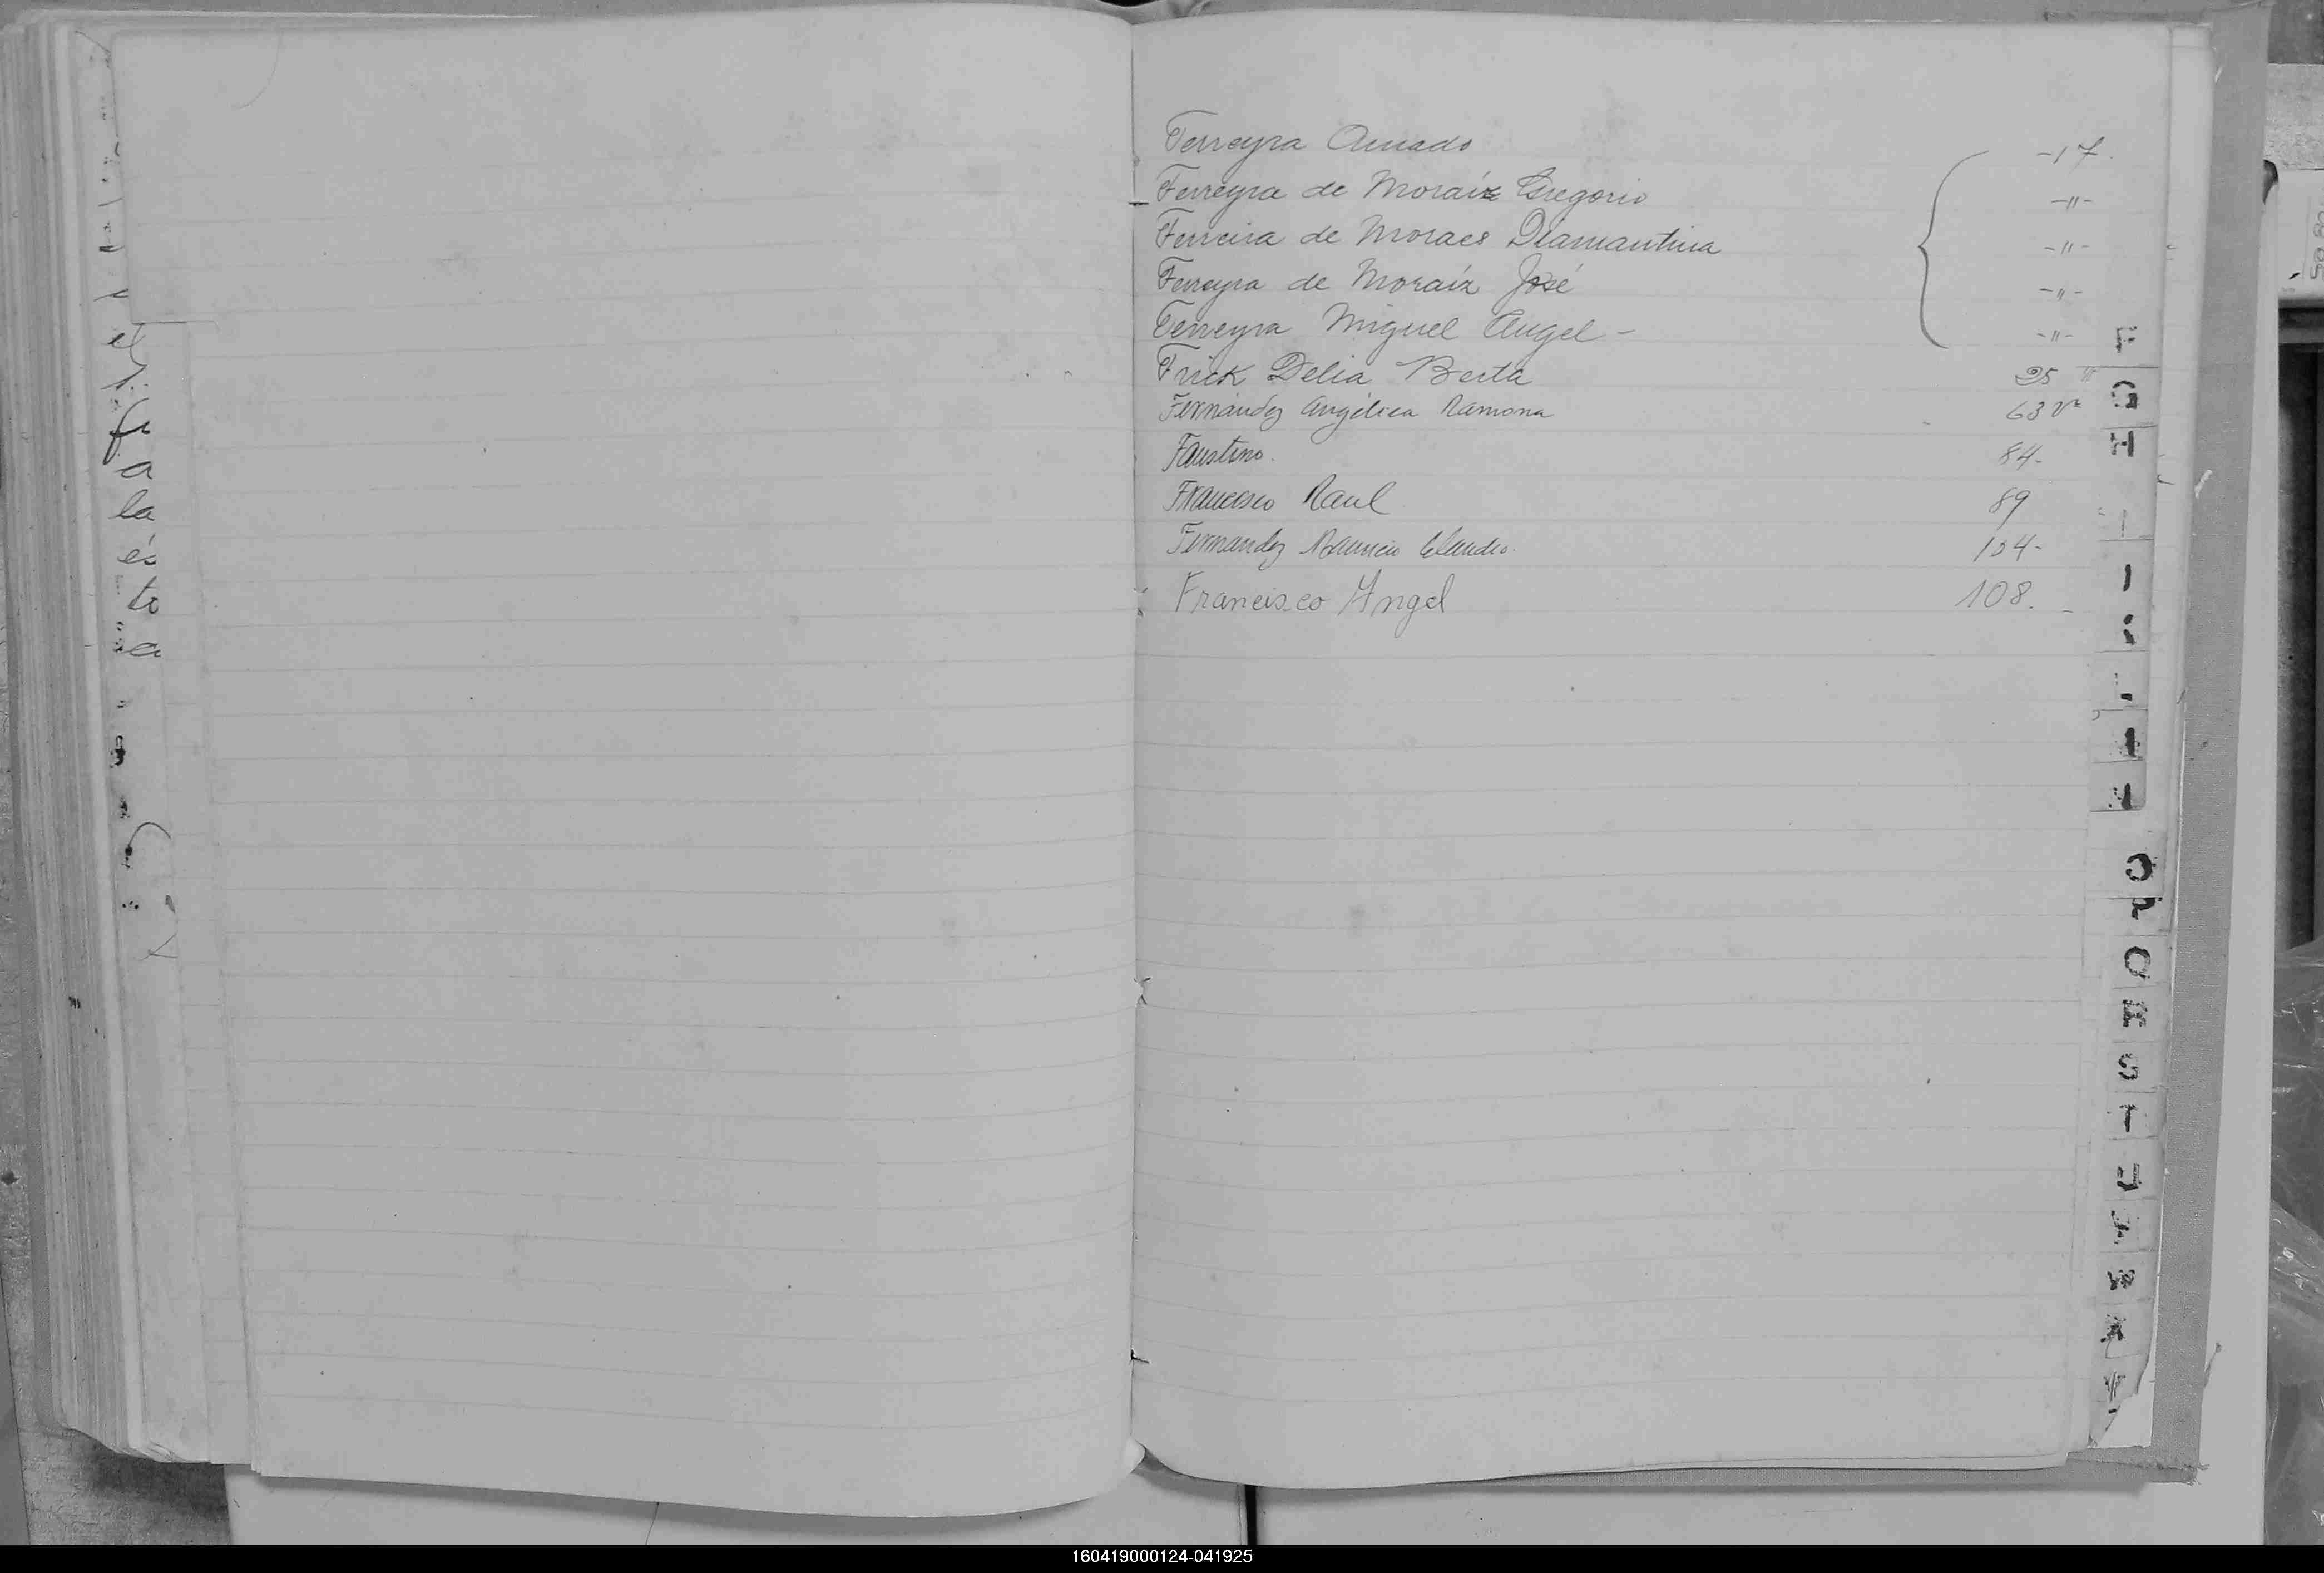 Ferreyra Amado -17.
Ferreyra de Moraiz Gregorio -"-
Ferreira de Moraes Diamantina -"-
Ferreyra de Moraíz José -"-
Ferreyra Miguel Angel - -"-
Frick Delia Berta 25 "
Fernández Angélica Ramona 63 v
Faustino. 84-
Francisco Raul 89
Fernandez Mauricio Claudio. 104-
Francisco Angel 108.
el
a
la
és
to
a
F
G
H
O
R
S
T
160419000124-041925